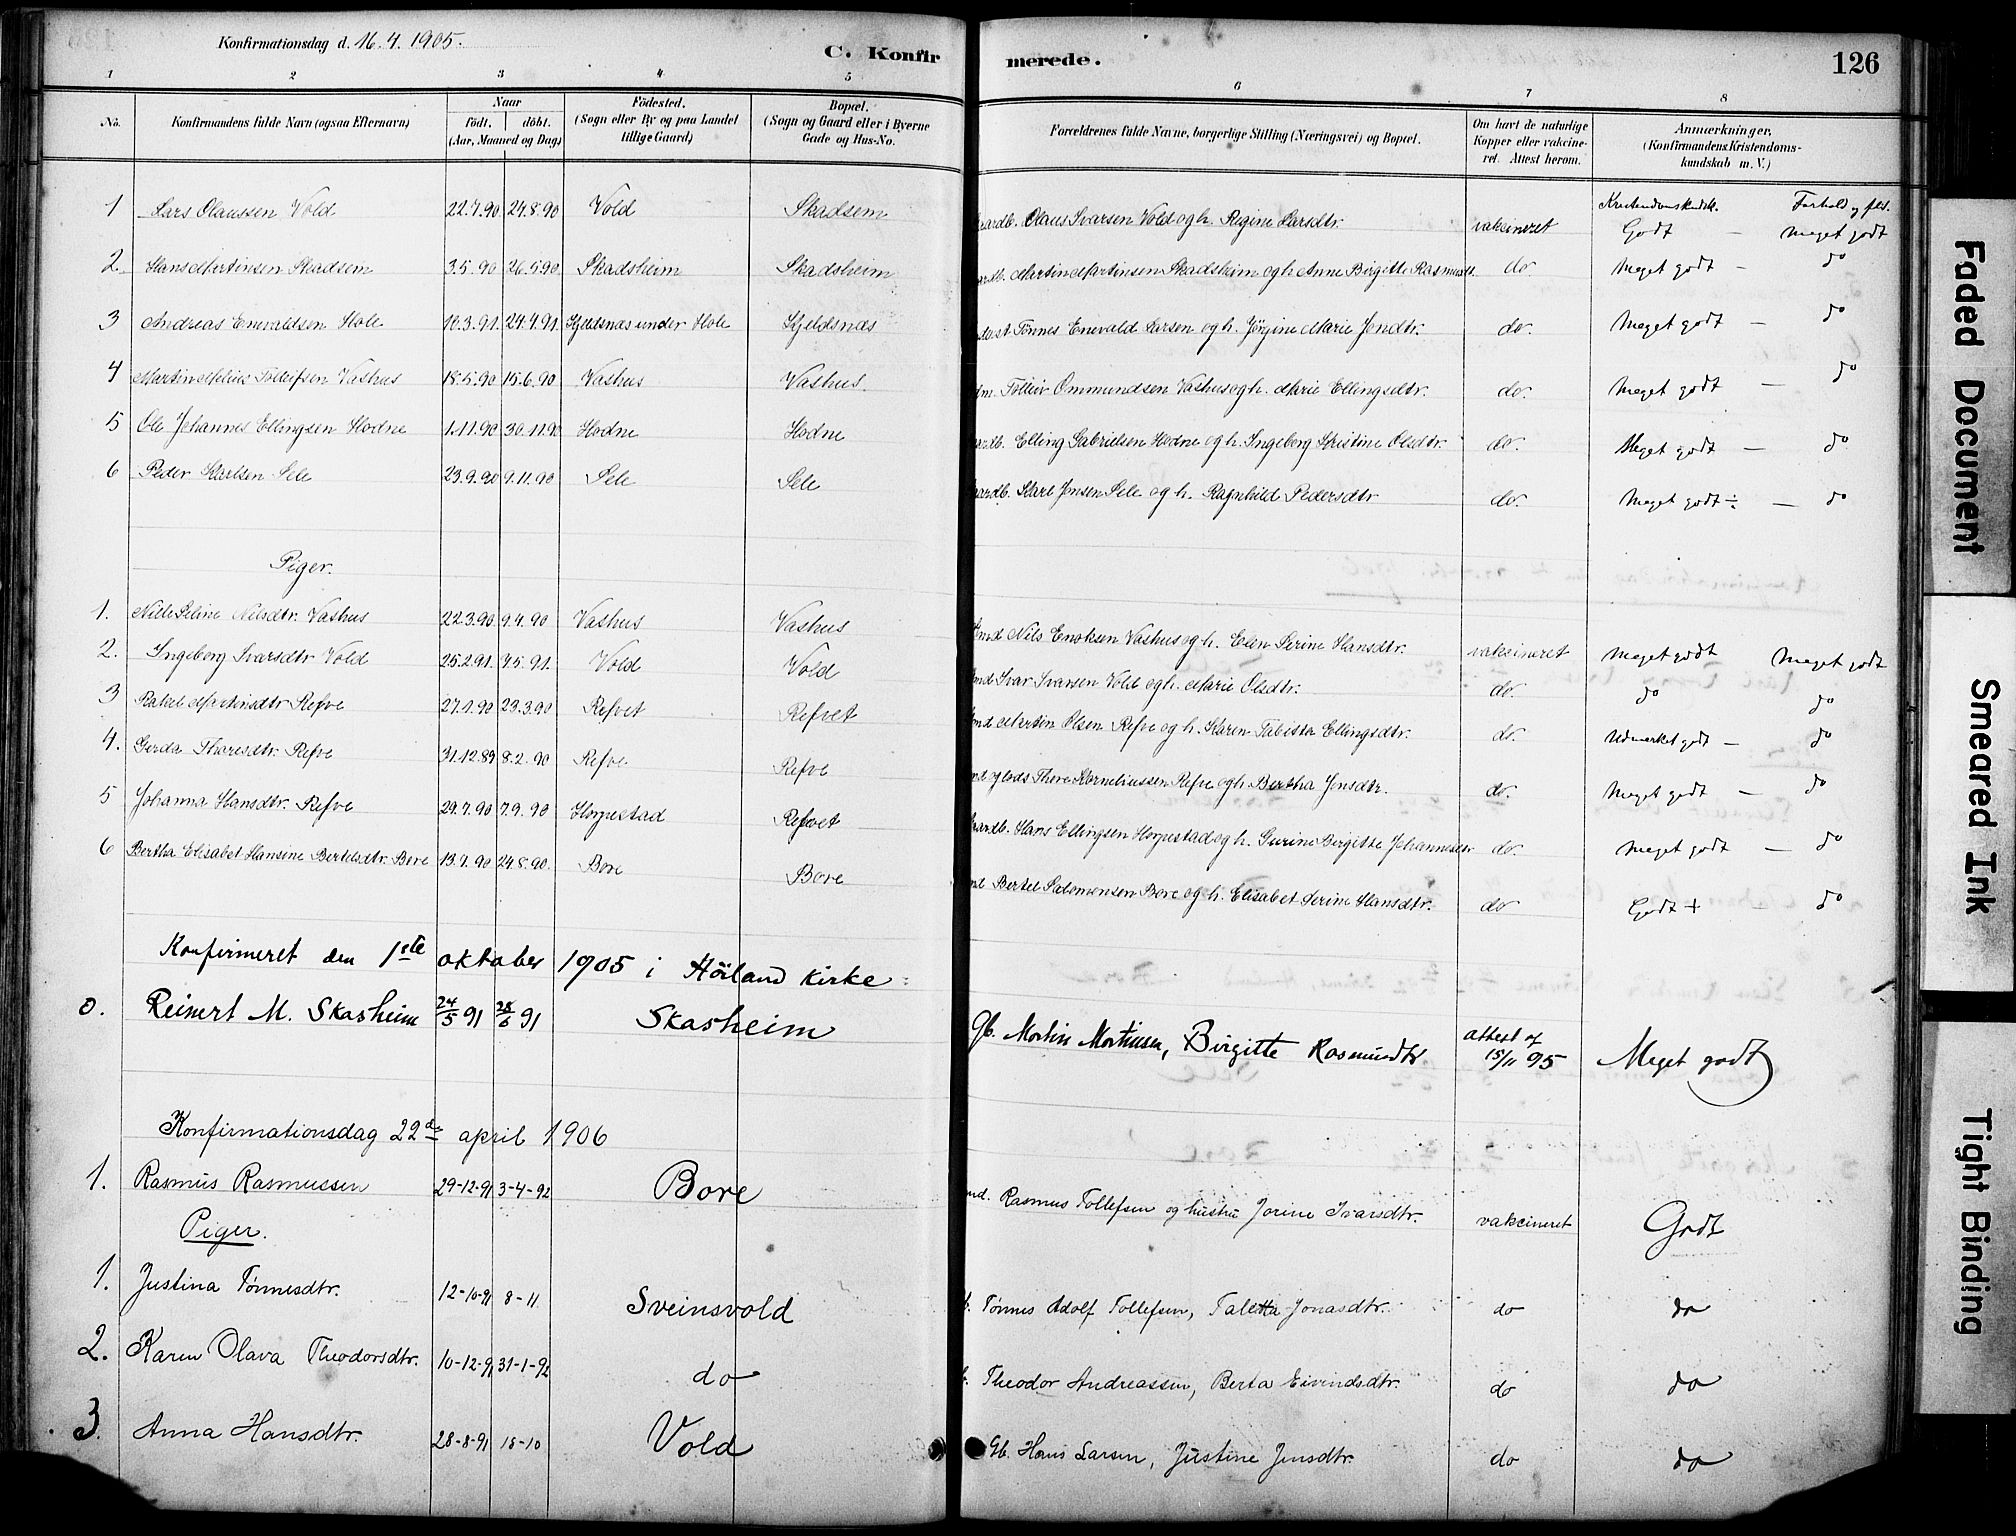 Konfirmationsdag d. 16.4.1905.
C. Konfirmerede.
126
1 2 3 4 5 6 7 8
No. Konfirmandens fulde Navn (ogsaa Efternavn) Naar födt. döbt. (Aar, Maaned og Dag) Födested. (Sogn eller By og paa Landet tillige Gaard) Bopæl. (Sogn og Gaard eller i Byerne Gade og Hus-No. Forældrenes fulde Navne, borgerlige Stilling (Næringsvei) og Bopæl. Om havt de naturlige Kopper eller vakcineret. Attest herom. Anmærkninger, (Konfirmandens Kristendomskundskab m. V.)
Forhold og flid.
1 Lars Olaussen Vold 22.7.90 24.8.90 Vold Skadsem Olaus Ivarsen Vold og h. Regine Larsdtr. vakcineret Godt – Meget godt
2 Hans Martinsen Skadsem 3.5.90 26.5.90 Skadsheim Skadsheim Martin Martinsen Skadsheim og h. Anne Birgitte Rasmusdtr. do. Meget godt – do
3 Andreas Enevaldsen Hole 10.3.91. 24.4.91. Kjeldsnæs under Hole Kjeldsnæs Tønnes Enevald Larsen og h. Jörgine Marie Jondtr. do. Meget godt – do
4 Martin Melius Tolleifsen Vashus 18.5.90 15.6.90 Vashus Vashus. Tolleiv Ommundsen Vashus og h. Marie Ellingsdtr. do. Meget godt – do
5 Ole Johannes Ellingsen Hodne 1.11.90 30.11.90 Hodne Hodne Elling Gabrielsen Hodne og h. Ingeborg Kristine Olsdtr. do. Meget godt – do
6 Peder Karlsen Sele 23.9.90 9.11.90 Sele Sele Karl Jonsen Sele og h. Ragnhild Pedersdtr do. Meget godt ÷ – do
Piger.
1. Nille Seline Nilsdtr. Vashus 22.3.90 9.4.90 Vashus Vashus Nils Enoksen Vashus og h. Elen Serine Hansdtr. vakcineret Meget godt Meget godt
2. Ingeborg Ivarsdtr Vold 25.2.91. 7.5.91. Vold Vold Ivar Ivarsen Vold og h. Marie Olsdtr. do. do do
3 Rakel Martinsdtr Refve 27.1.90 23.3.90 Refvet Refvet Martin Olsen Refve og h. Karen Tabitta Ellingsdtr. do. Udmerket godt – do
4. Gerda Thoresdtr. Refve 31.12.89 8.2.90 Refve Refve Thore Korneliussen Refve og h. Bertha Jonsdtr. do. Meget godt – do
5 Johanna Hansdtr. Refve 29.7.90 7.9.90 Horpestad Refvet Hans Ellingsen Horpestad og h. Gurine Birgitte Johannesdtr do. Meget godt – do
6 Bertha Elisabet Hansine Bertelsdtr. Bore 13.7.90 24.8.90. Bore Bore Bertel Salomonsen Bore og h. Elisabet Serine Hansdtr. do Godt + – do
Konfirmeret den 1ste oktober 1905 i Höiland kirke
0. Reinert M. Skasheim 24/5 91 28/6 91 Skasheim Gb. Martin Martinsen, Birgitte Rasmusdtr attest af 15/11 95 Meget godt
Konfirmationsdag 22de april 1906
1. Rasmus Rasmussen 29-12-91 3-4-92 Bore Rasmus Tollefsen og hustru Jorine Ivarsdtr. vakcineret Godt
Piger.
1. Justina Tönnesdtr. 12-10-91 8-11 Sveinsvold Tønnes Adolf Tollefsen, Taletta Jonasdtr. do do
2. Karen Olava Theodorsdtr. 10-12-91 31-1-92 do Theodor Andreassen, Berta Eivindsdtr. do do
3. Anna Hansdtr. 28-8-91 18-10 Vold Gb. Hans Larsen, Justine Jensdtr. do do
Faded Document
Smeared Ink
Tight Binding